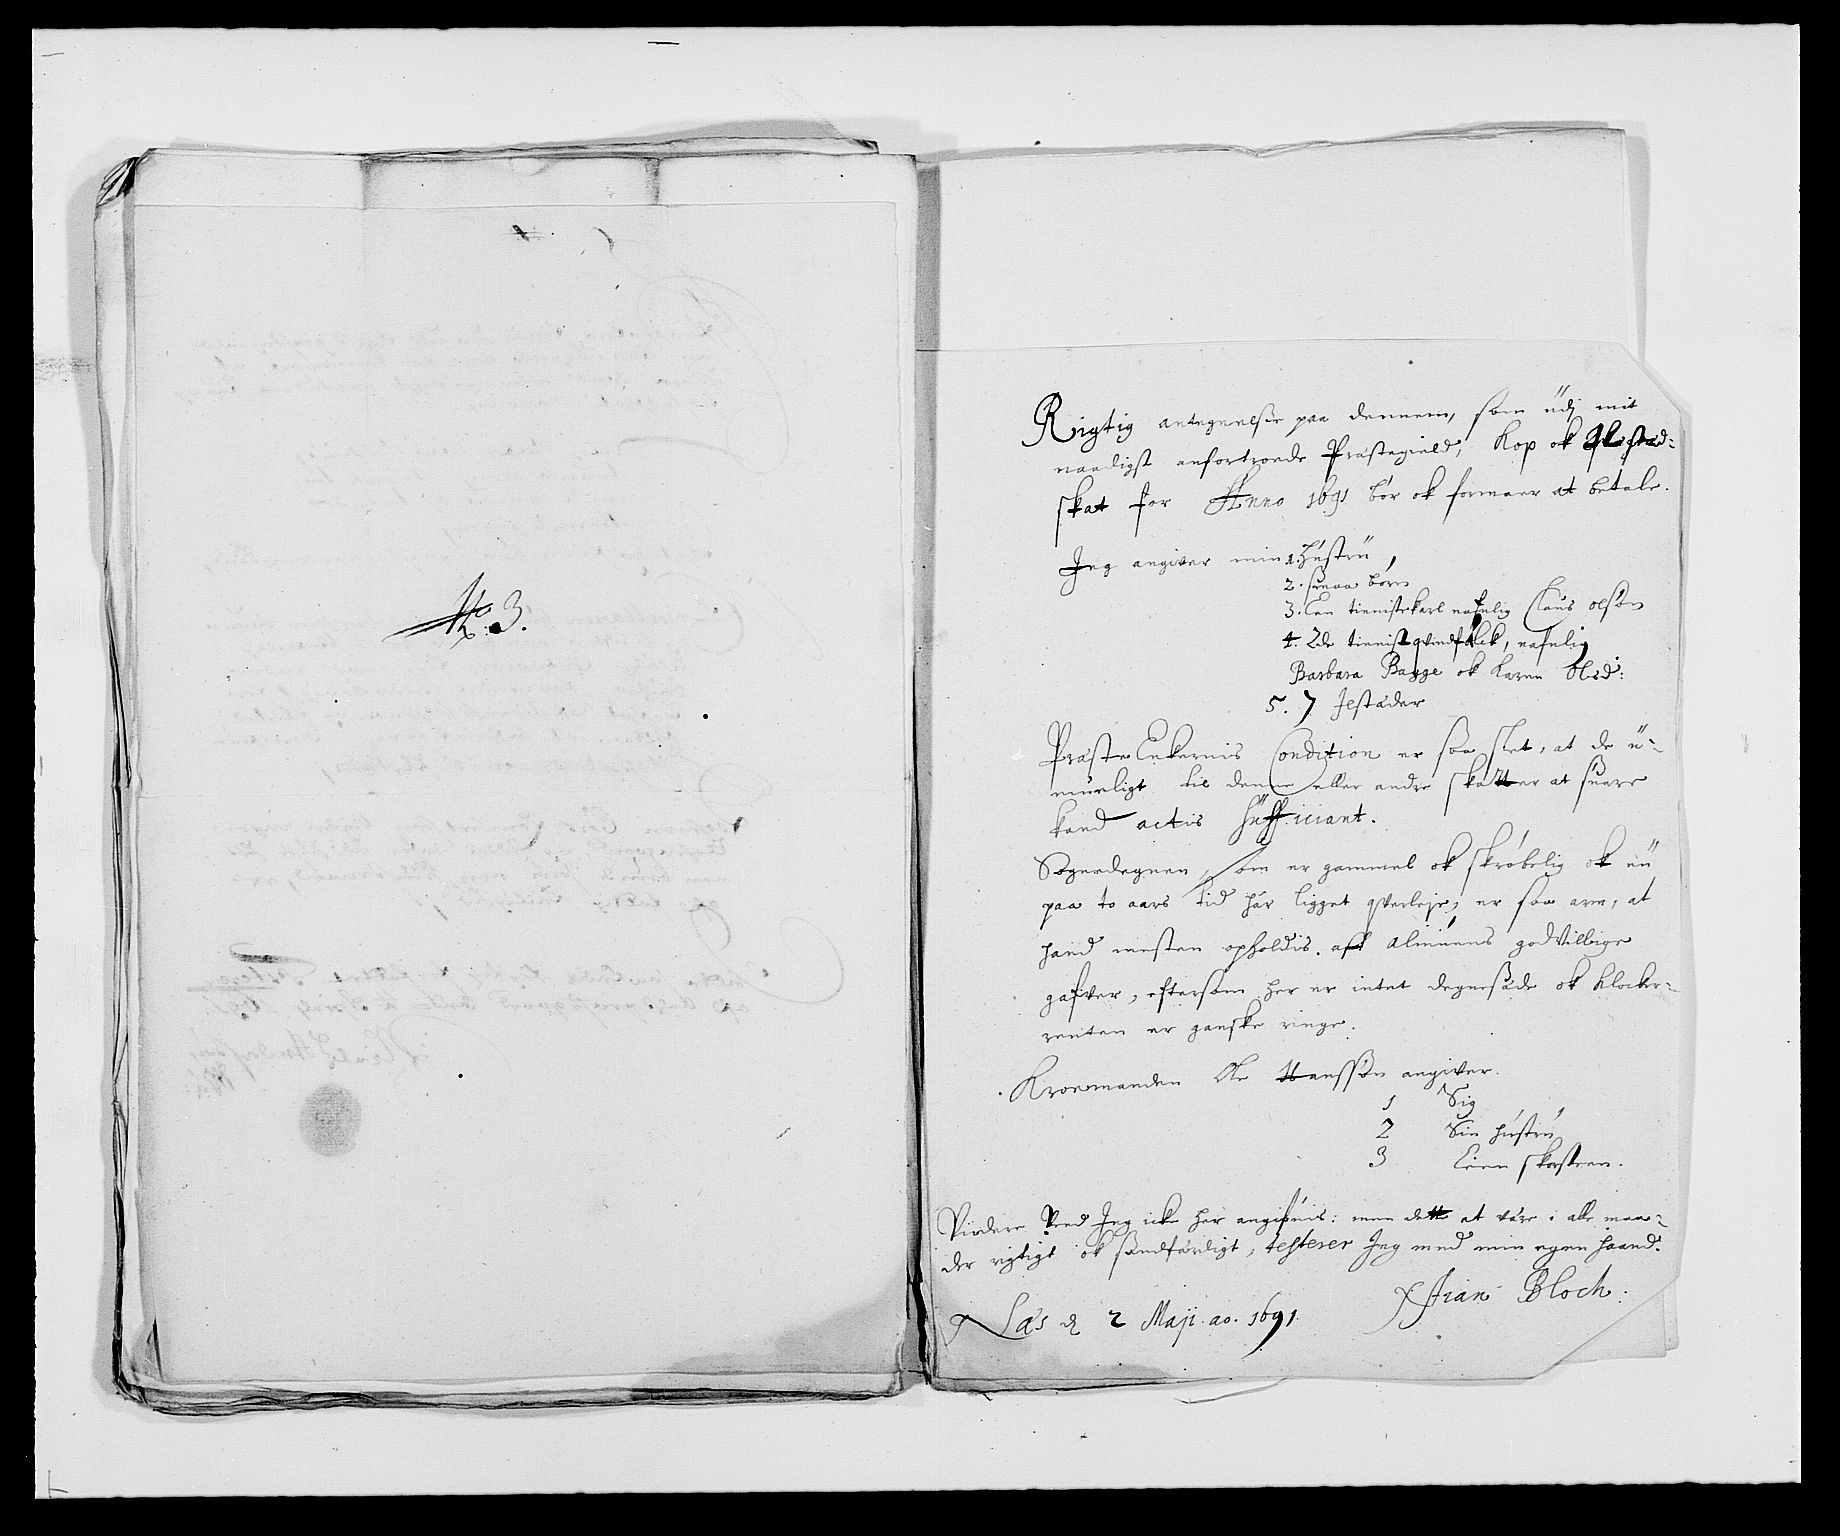 No. 3.
Rigtig antegnelse paa dennem, som udj mit
naadigst anfortroede Præstegield, Kop ok Ildsted-
skat for Anno 1691 bör ok formaaer at betale.
Jeg angiver min 1. Hustru,
2. smaa börn
3. Een tienistekarl nafnlig Claus olsön
4. 2de tienistqvindfolck, nafnlig
Barbara Bagge ok Karen Olsd:
5. 7 Ilstæder
Præste Enkernis Condition er saa slet, at de u-
mueligt til denne eller andre skatter at suare
kand actis sufficiant.
Sognedegnen, som er gammel ok skröbelig ok nu
paa to aars tid har ligget qverleje, er saa arm, at
hand mesten opholdis aff almuens godvillige
gafver, eftersom her er intet degnesæde ok Klocker-
renten er ganske ringe.
Kroemanden Ole Hanssön angiver.
1 Sig
2 Sin hustru
3 Eien skorsteen.
Viidere Veed Jeg icke her angifvis: men dette at være i alle maa-
der rigtigt ok sandfærdigt, testerer Jeg med min egen haand.
Næs d 2 Maji ao. 1691.
Jfran Bloch.